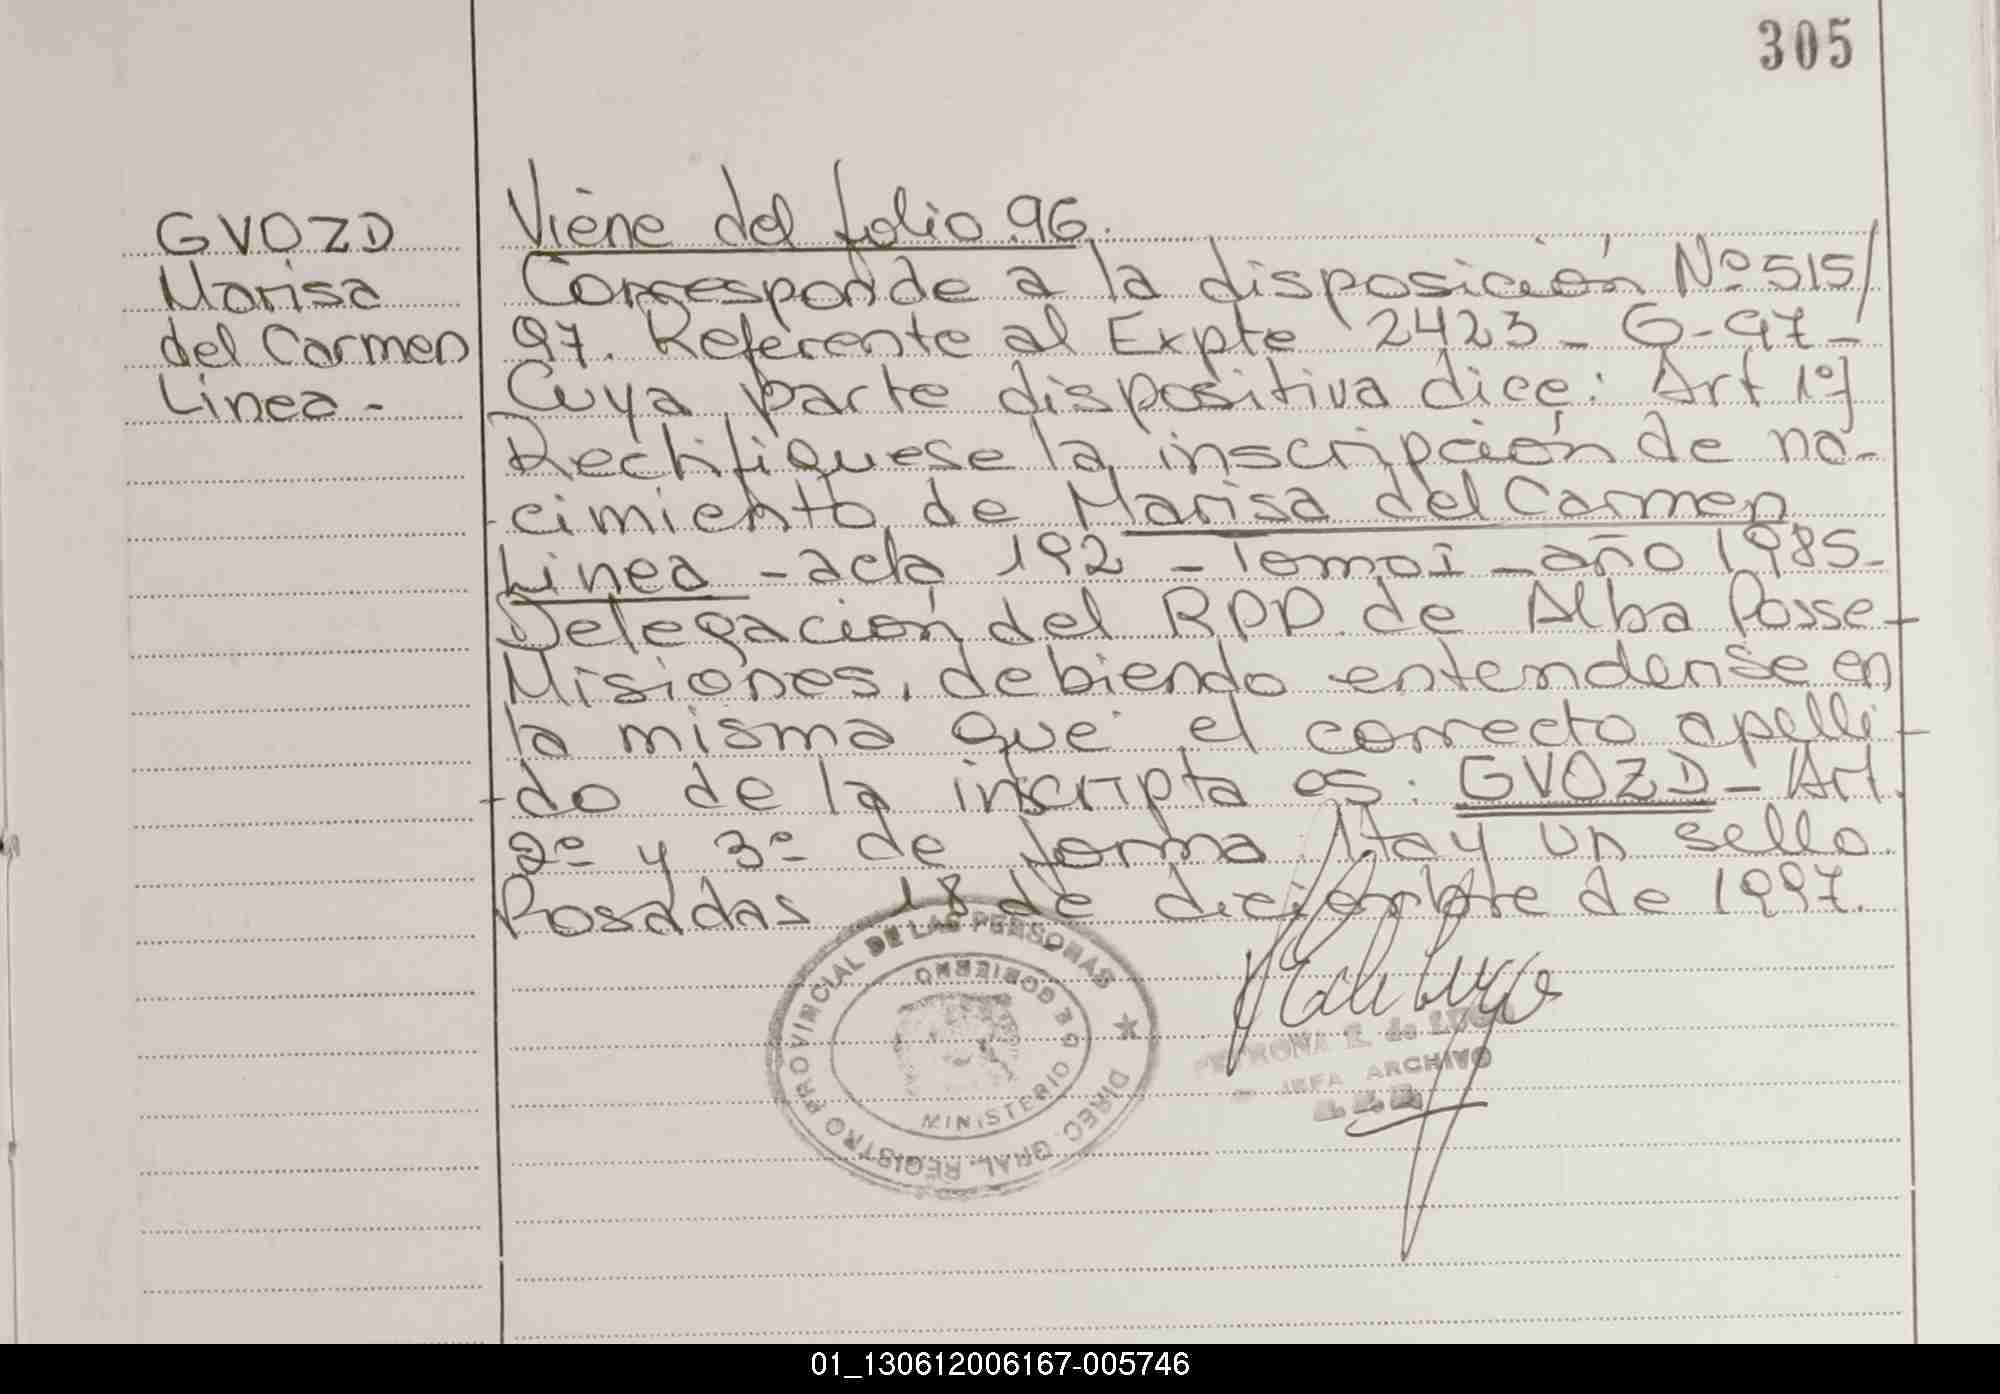 305
GVOZD
Marisa
del Carmen
Linea-
Viene del folio 96.
Corresponde a la disposición Nº 515/
97. Referente al Expte 2423-G-97-
Cuya parte dispositiva dice: Art 1º]
Rectifiquese la inscripción de na-
cimiento de Marisa del Carmen
Linea - acta 192 - Tomo I - año 1985-
Delegación del RPP de Alba Posse-
Misiones, debiendo entenderse en
la misma que el correcto apelli-
-do de la inscripta es: GVOZD - Art.
2º y 3º de forma. Hay un sello.
Posadas 18 de diciembre de 1997.
DIREC. GRAL. REGISTRO PROVINCIAL DE LAS PERSONAS
MINISTERIO DE GOBIERNO
PETRONA E. de LUGO
JEFA ARCHIVO
01_130612006167-005746